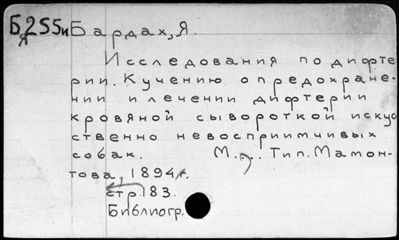 Б255и Бардах, Я.
Я
Исследования по дифте
рии. К учению о предохране-
нии и лечении дифтерии
кровяной сывороткой искус
ственно невосприимчивых
собак. М., Тип. Мамон-
това, 1894 г.
стр. 183.
Библиогр.